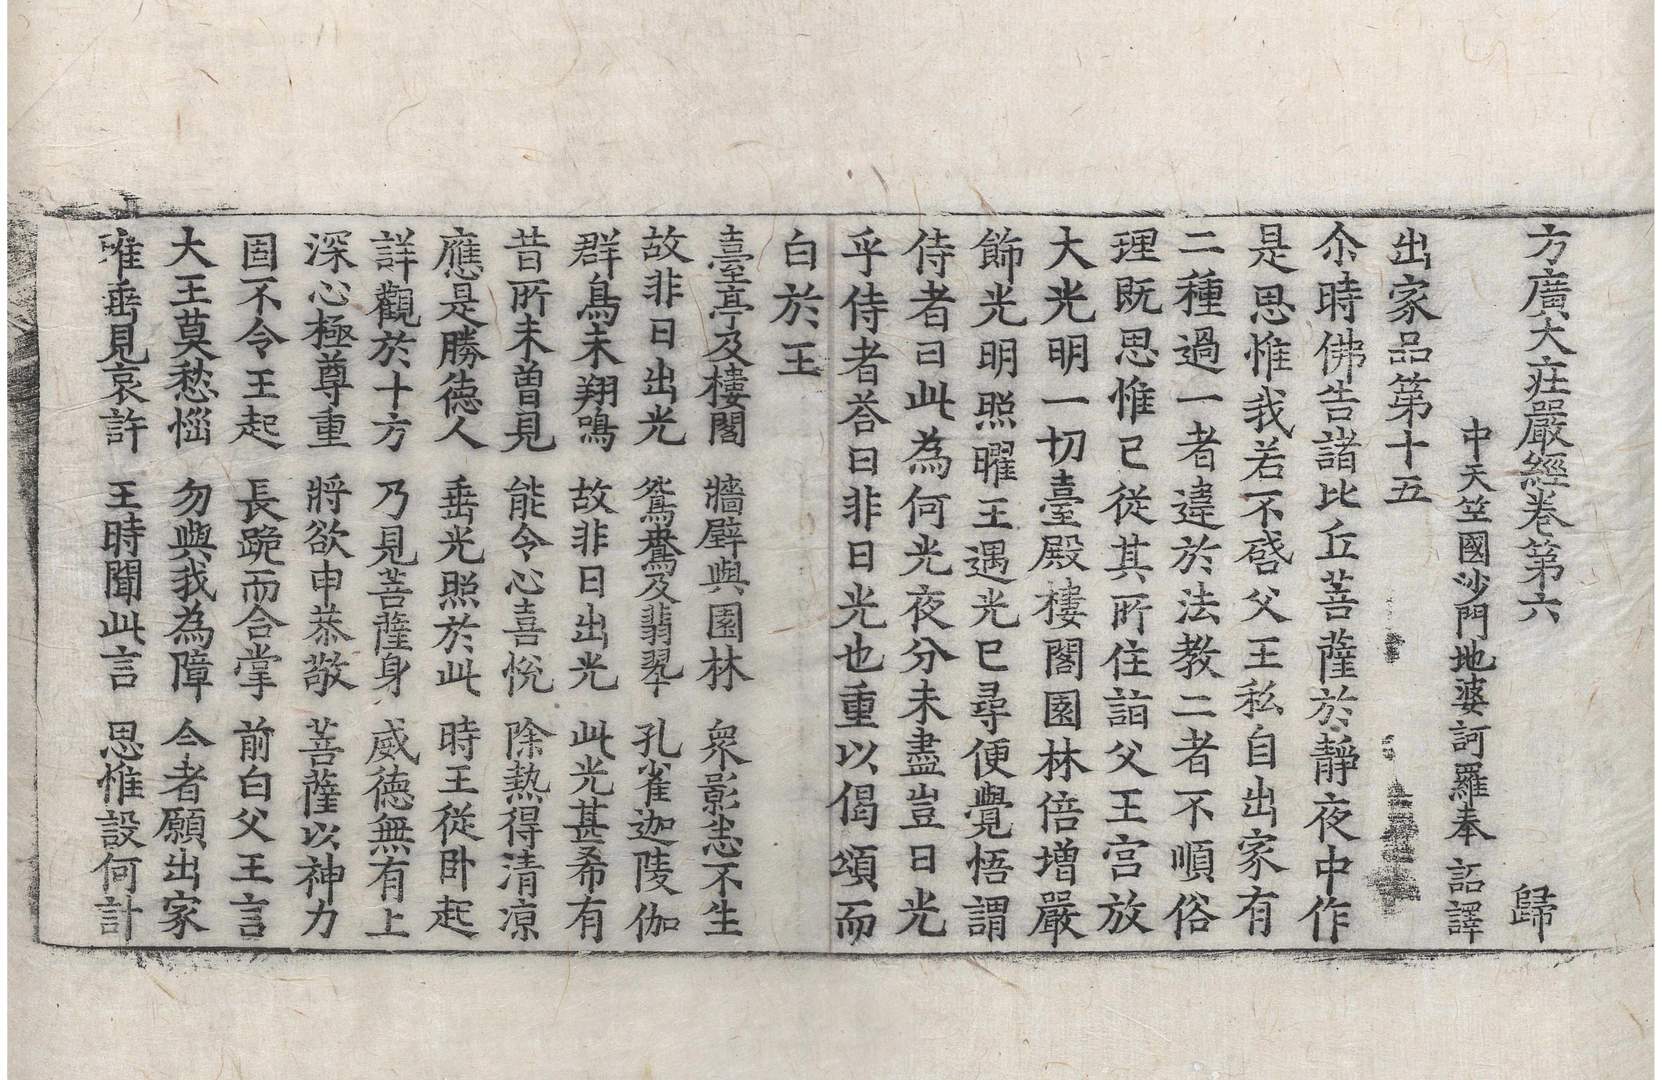 方廣大莊嚴經卷第六 歸
中天竺國沙門地婆訶羅奉 詔譯
出家品第十五
尒時佛告諸比丘菩薩於靜夜中作
是思惟我若不啓父王私自出家有
二種過一者違於法教二者不順俗
理既思惟已從其所住詣父王宮放
大光明一切臺殿樓閣園林倍增嚴
飾光明照曜王遇光已尋便覺悟謂
侍者曰此為何光夜分未盡豈日光
乎侍者荅曰非日光也重以偈頌而
白於王
臺亭及樓閣 牆壁與園林 衆影悉不生
故非日出光 鴛鴦及翡翠 孔雀迦陵伽
群鳥未翔鳴 故非日出光 此光甚希有
昔所未曾見 能令心喜悅 除熱得清凉
應是勝德人 垂光照於此 時王從卧起
詳觀於十方 乃見菩薩身 威德無有上
深心極尊重 將欲申恭敬 菩薩以神力
固不令王起 長跪而合掌 前白父王言
大王莫愁惱 勿與我為障 今者願出家
唯垂見哀許 王時聞此言 思惟設何計